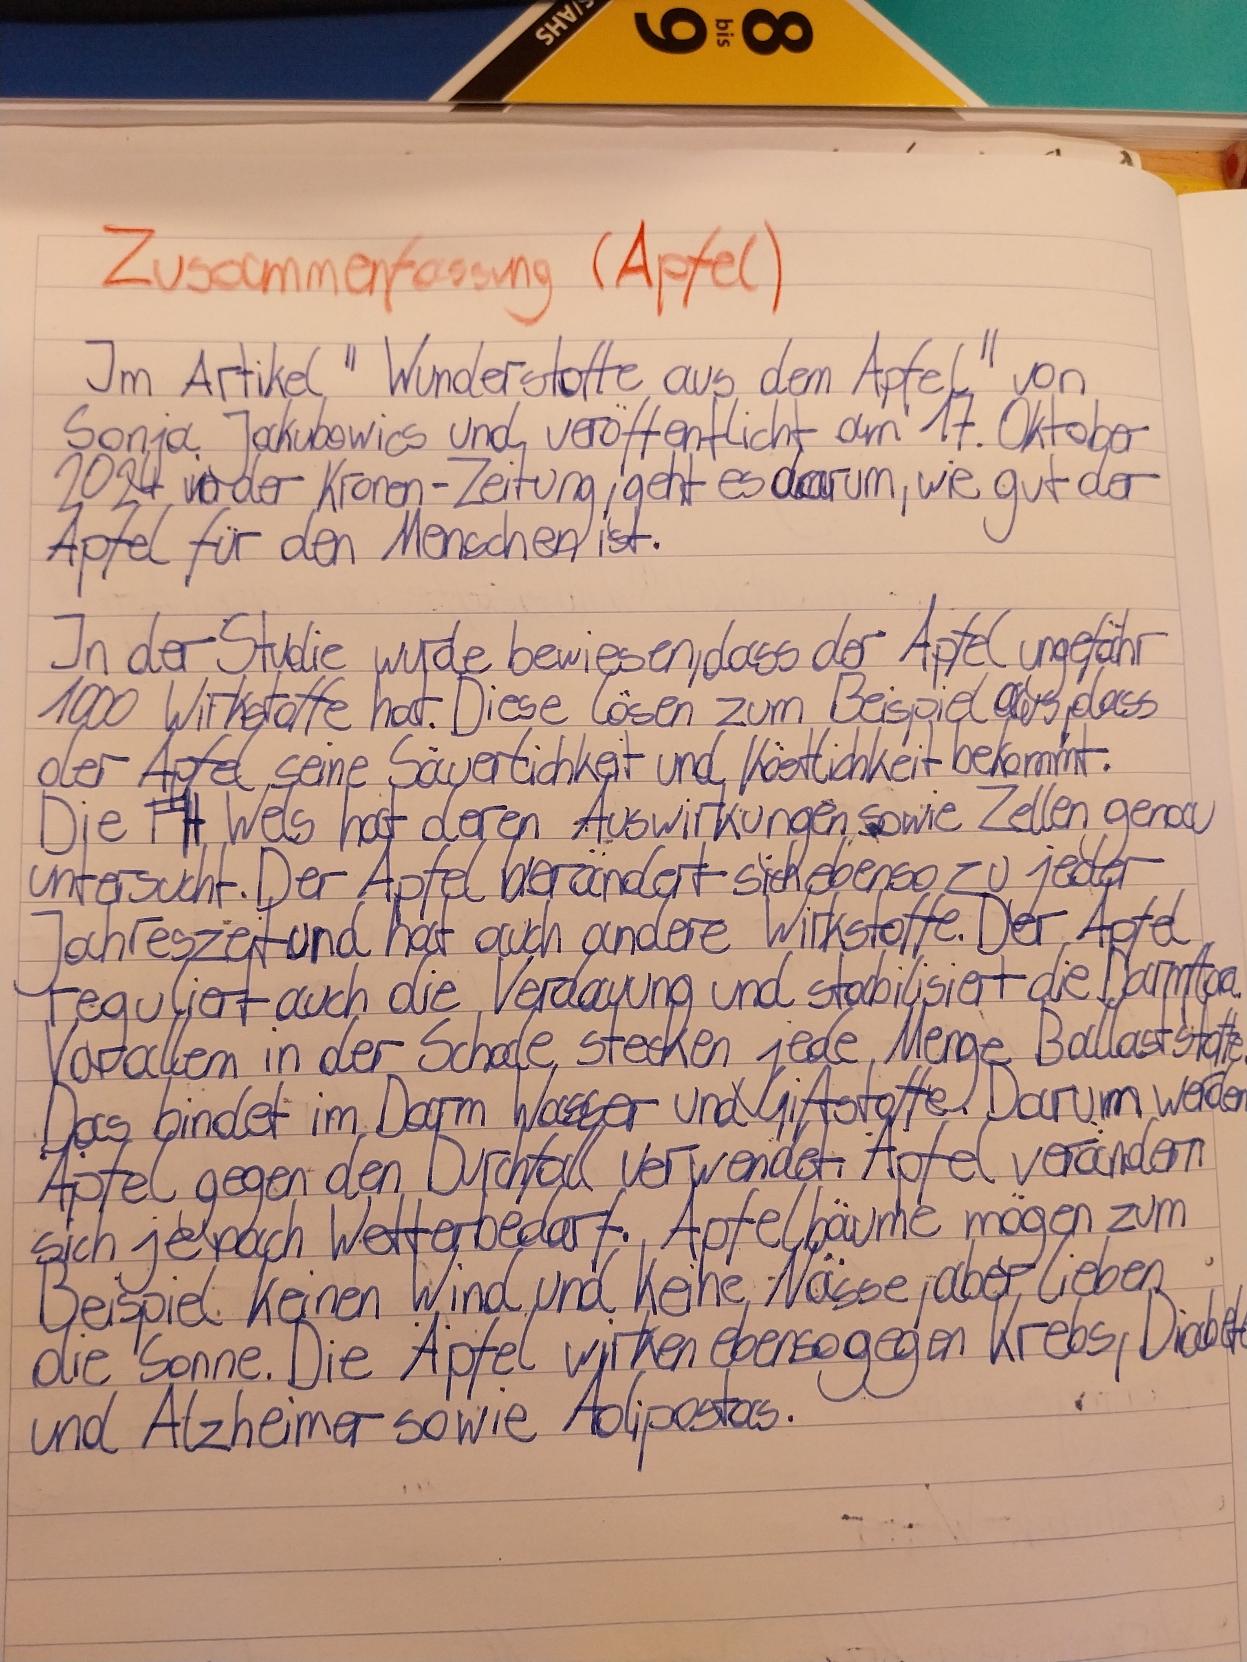 8 bis 9
S/AHS
Zusammenfassung (Apfel)
Im Artikel "Wunderstoffe aus dem Apfel" von
Sonja Jakubowics und veröffentlicht am 17. Oktober
2024 in der Kronen-Zeitung, geht es darum, wie gut der
Apfel für den Menschen ist.
In der Studie wurde bewiesen, dass der Apfel ungefähr
1000 Wirkstoffe hat. Diese lösen zum Beispiel aus, dass
der Apfel seine Säuerlichkeit und Köstlichkeit bekommt.
Die FH Wels hat deren Auswirkungen sowie Zellen genau
untersucht. Der Apfel verändert sich ebenso zu jeder
Jahreszeit und hat auch andere Wirkstoffe. Der Apfel
reguliert auch die Verdauung und stabilisiert die Darmflora.
Vorallem in der Schale stecken jede Menge Ballaststoffe.
Das bindet im Darm Wasser und Giftstoffe. Darum werden
Äpfel gegen den Durchfall verwendet. Äpfel verändern
sich je nach Wetterbedarf. Apfelbäume mögen zum
Beispiel keinen Wind und keine Nässe, aber lieben
die Sonne. Die Äpfel wirken ebenso gegen Krebs, Diabete
und Alzheimer sowie Adipostas.